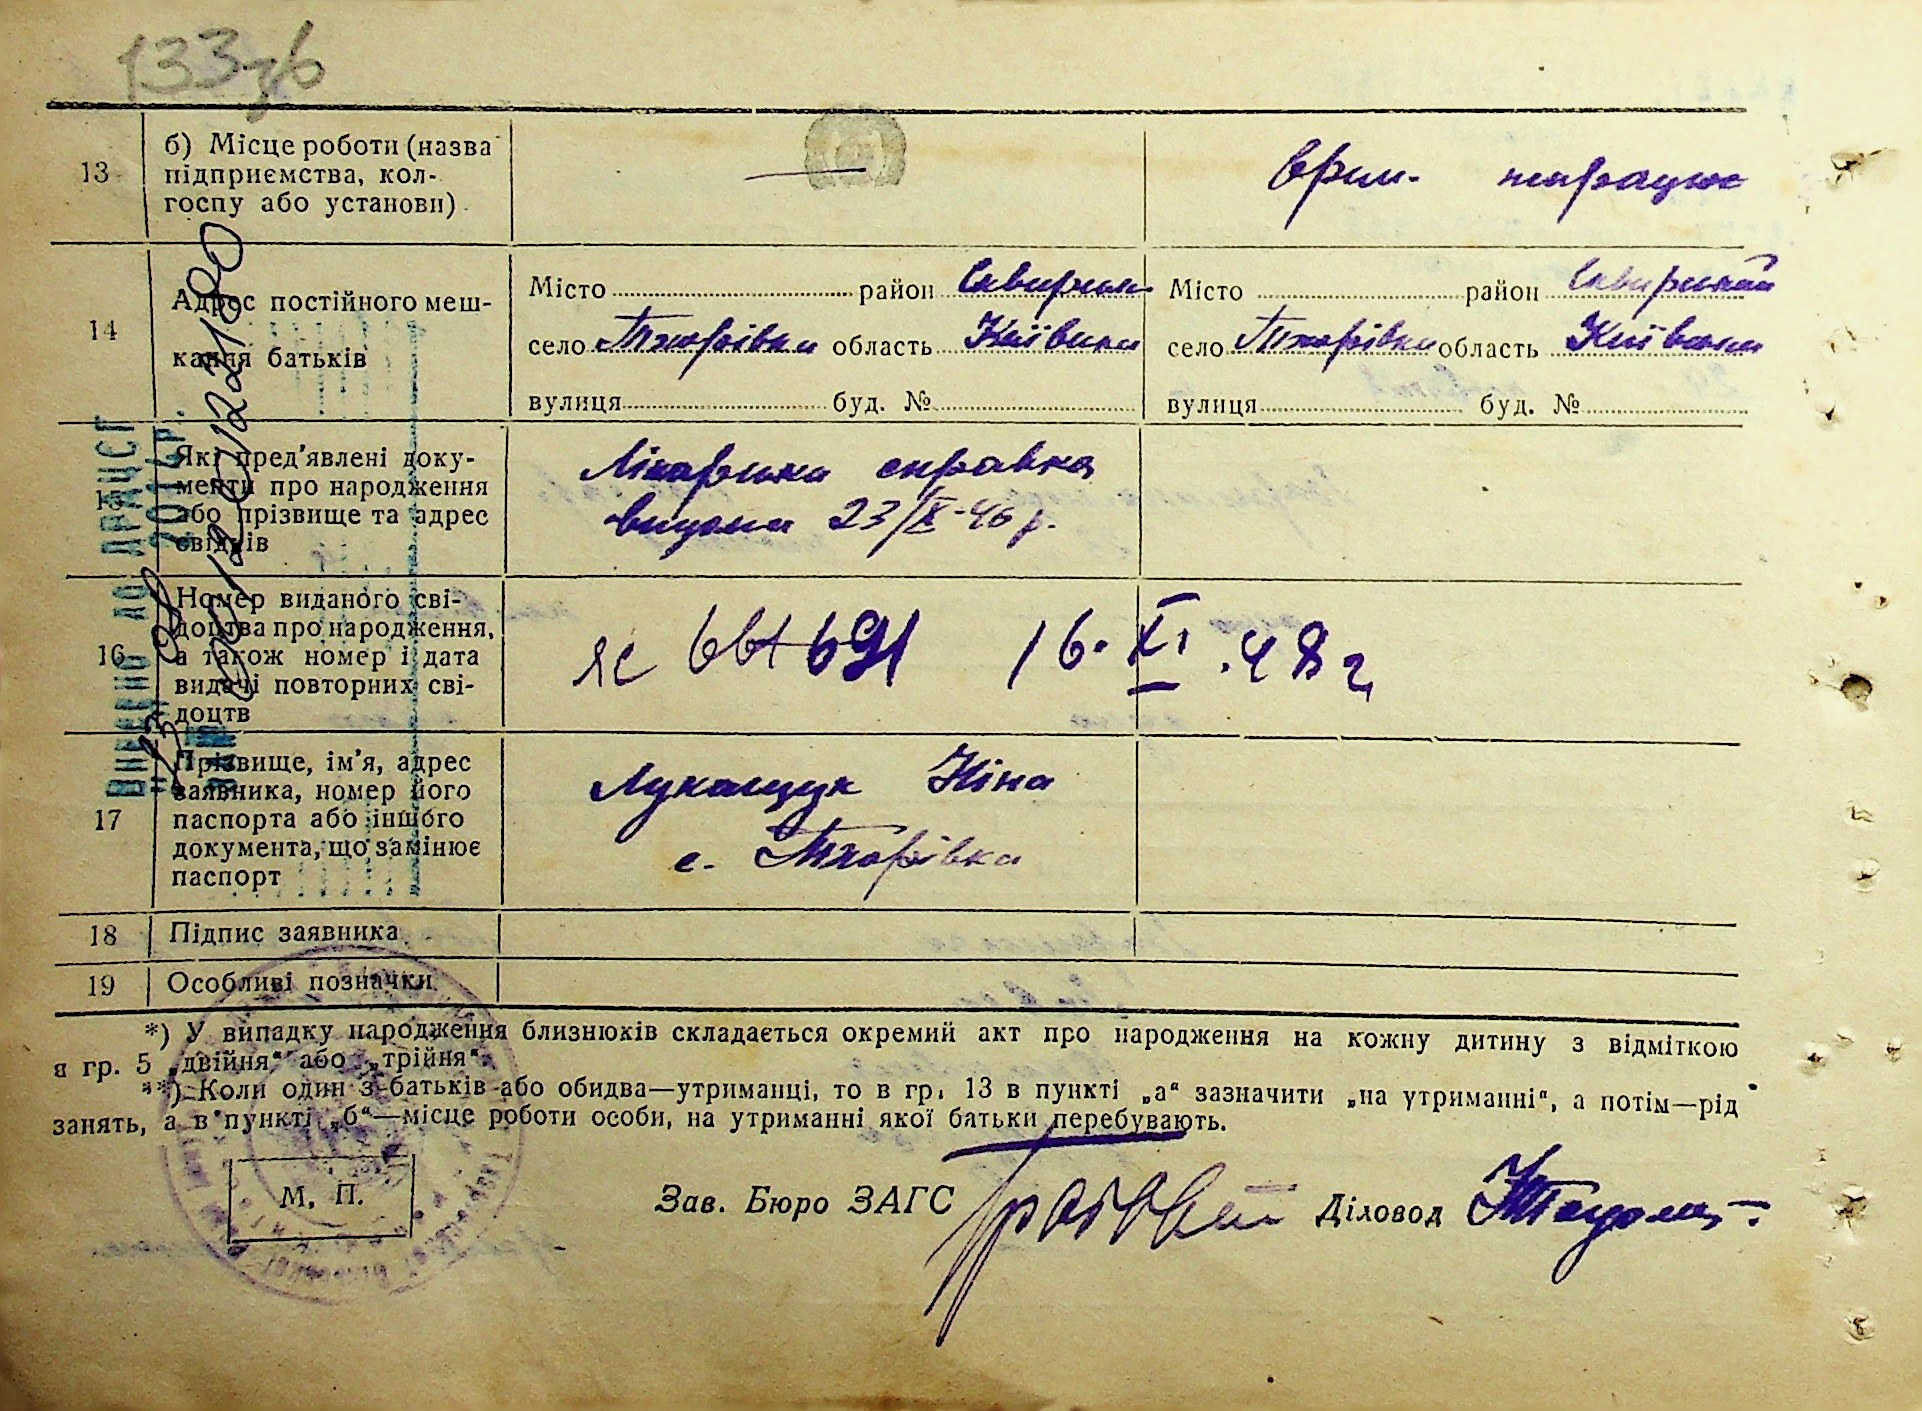 133зв
13 б) Місце роботи (назва підприємства, колгоспу або установи) — не працює
14 Адрес постійного меш-
кання батьків
Місто район Сквирськ Місто район Сквирський
село Тхорівка область Київська село Тхорівка область Київська
вулиця буд. № вулиця буд. №
15 Які пред'явлені доку-
менти про народження
або прізвище та адрес
свідків
Лікарська справка
видана 23/X-46 р.
16 Номер виданого сві-
доцтва про народження,
а також номер і дата
видачі повторних сві-
доцтв
16. XI .48 г
17 Прізвище, ім'я, адрес
заявника, номер його
паспорта або іншого
документа, що замінює
паспорт
Лукащук Ніна
с. Тхорівка
18 Підпис заявника
19 Особливі позначки
ВНЕСЕНО ДО ДРАЦСГ
*) У випадку народження близнюків складається окремий акт про народження на кожну дитину з відміткою
в гр. 5 „двійня“ або „трійня“.
**) Коли один з батьків або обидва—утриманці, то в гр. 13 в пункті „а“ зазначити „на утриманні“, а потім—рід
занять, а в пункті „б“—місце роботи особи, на утриманні якої батьки перебувають.
М. П.
Зав. Бюро ЗАГС Діловод